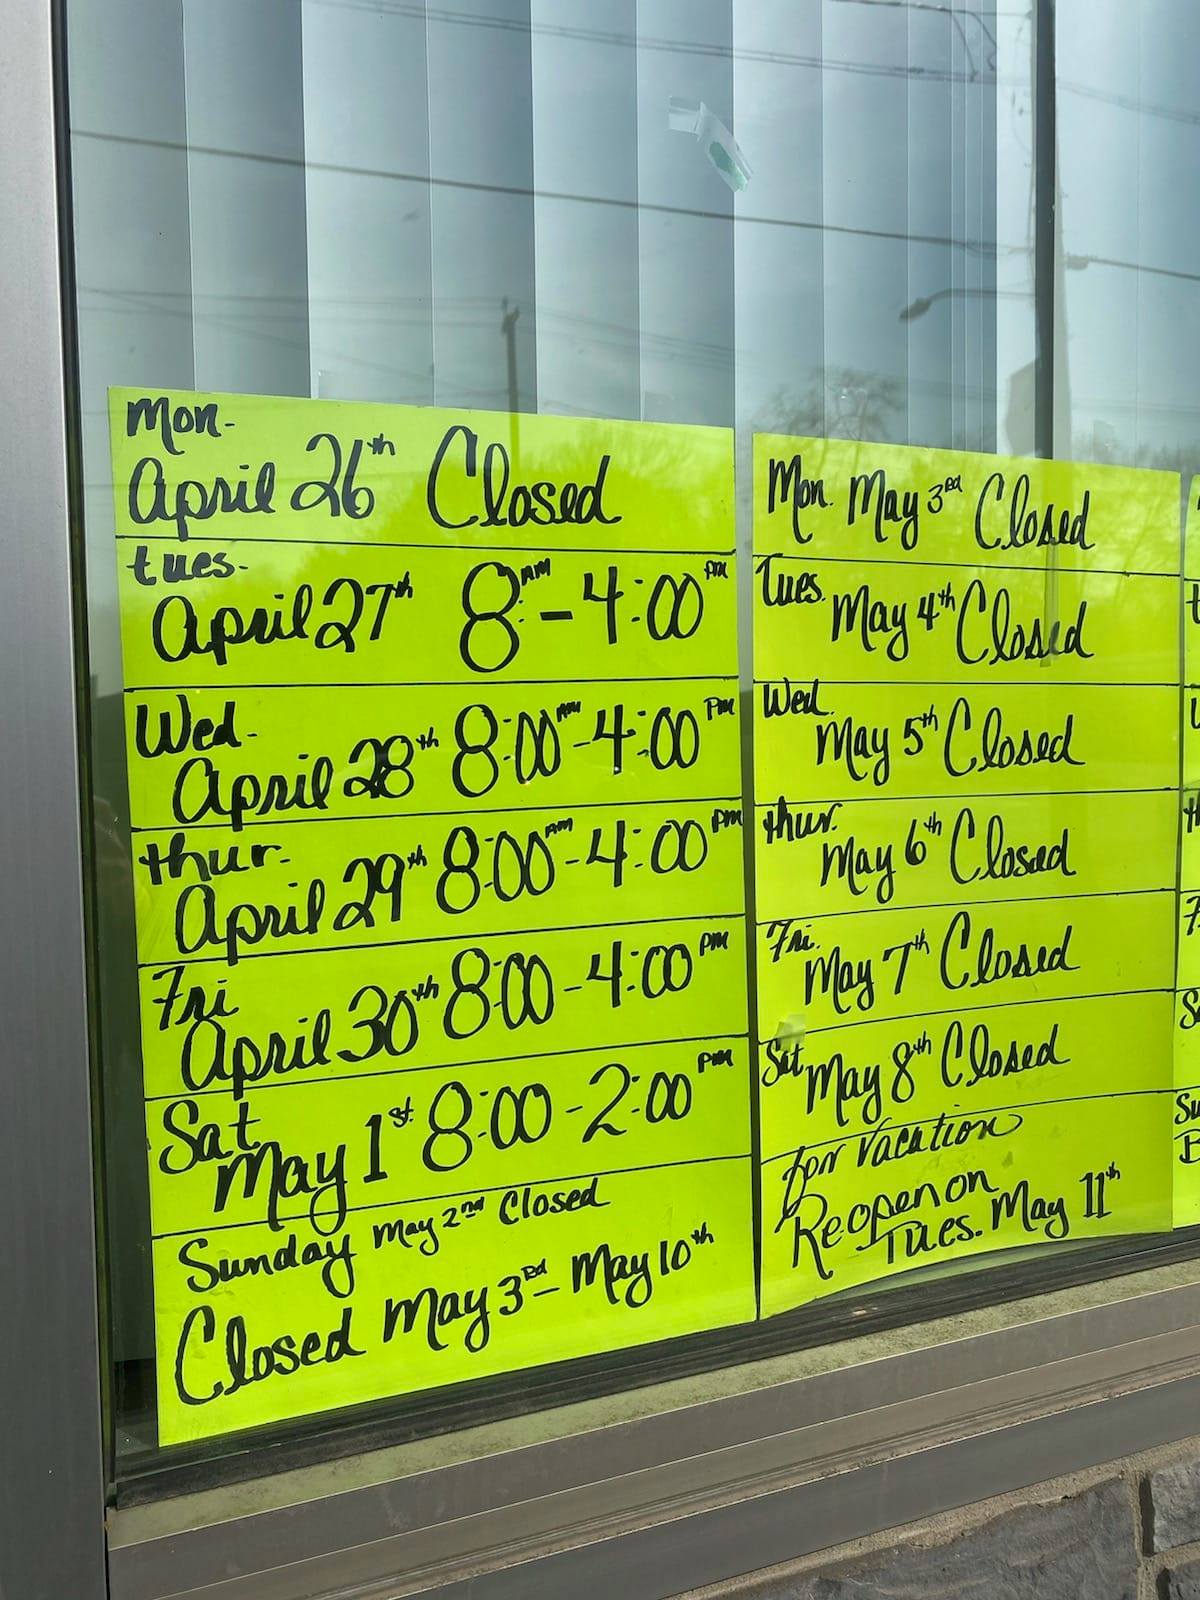 Mon.
April 26th Closed
tues.
April 27th 8:AM - 4:00 PM
Wed.
April 28th 8:00 AM - 4:00 PM
thur.
April 29th 8:00 AM - 4:00 PM
Fri
April 30th 8:00 - 4:00 PM
Sat
May 1st 8:00 - 2:00 PM
Sunday May 2nd Closed
Closed May 3rd - May 10th
Mon. May 3rd Closed
Tues.
May 4th Closed
Wed.
May 5th Closed
thur.
May 6th Closed
Fri.
May 7th Closed
Sat May 8th Closed
for vacation
Reopen on
Tues. May 11th